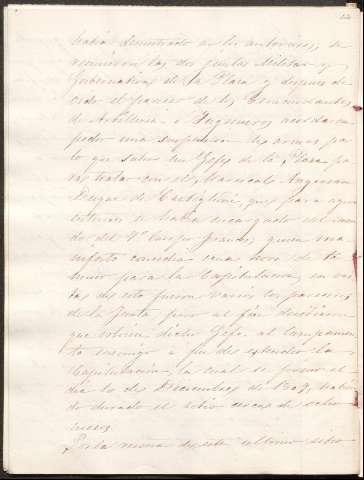 había demostrado en los anteriores, se
reunieron las dos Juntas Militar y
Gubernativa de la Plaza y despues de
oido el parecer de los Comandantes
de Artilleria e Ingenieros acordaron
pedir una suspension de armas pa
lo que salio un Gefe de la Plaza pa
ra tratar con el Mariscal Augereau
Duque de Castiglione, que para aquel
entonces se habia encargado del man
do del 7º Cuerpo frances, quien ma
nifestó concedia una hora de tér
mino para la Capitulacion, en vis
ta de esto fueron varios los pareceres
de la Junta pero al fin decidieron
que volviera dicho Gefe al Campamen
to enemigo a fin de estender la
Capitulacion, la cual se firmó el
dia 10 de Diciembre de 1809, habien
do durado el sitio cerca de ocho
meses.
Por la reseña de este ultimo sitio